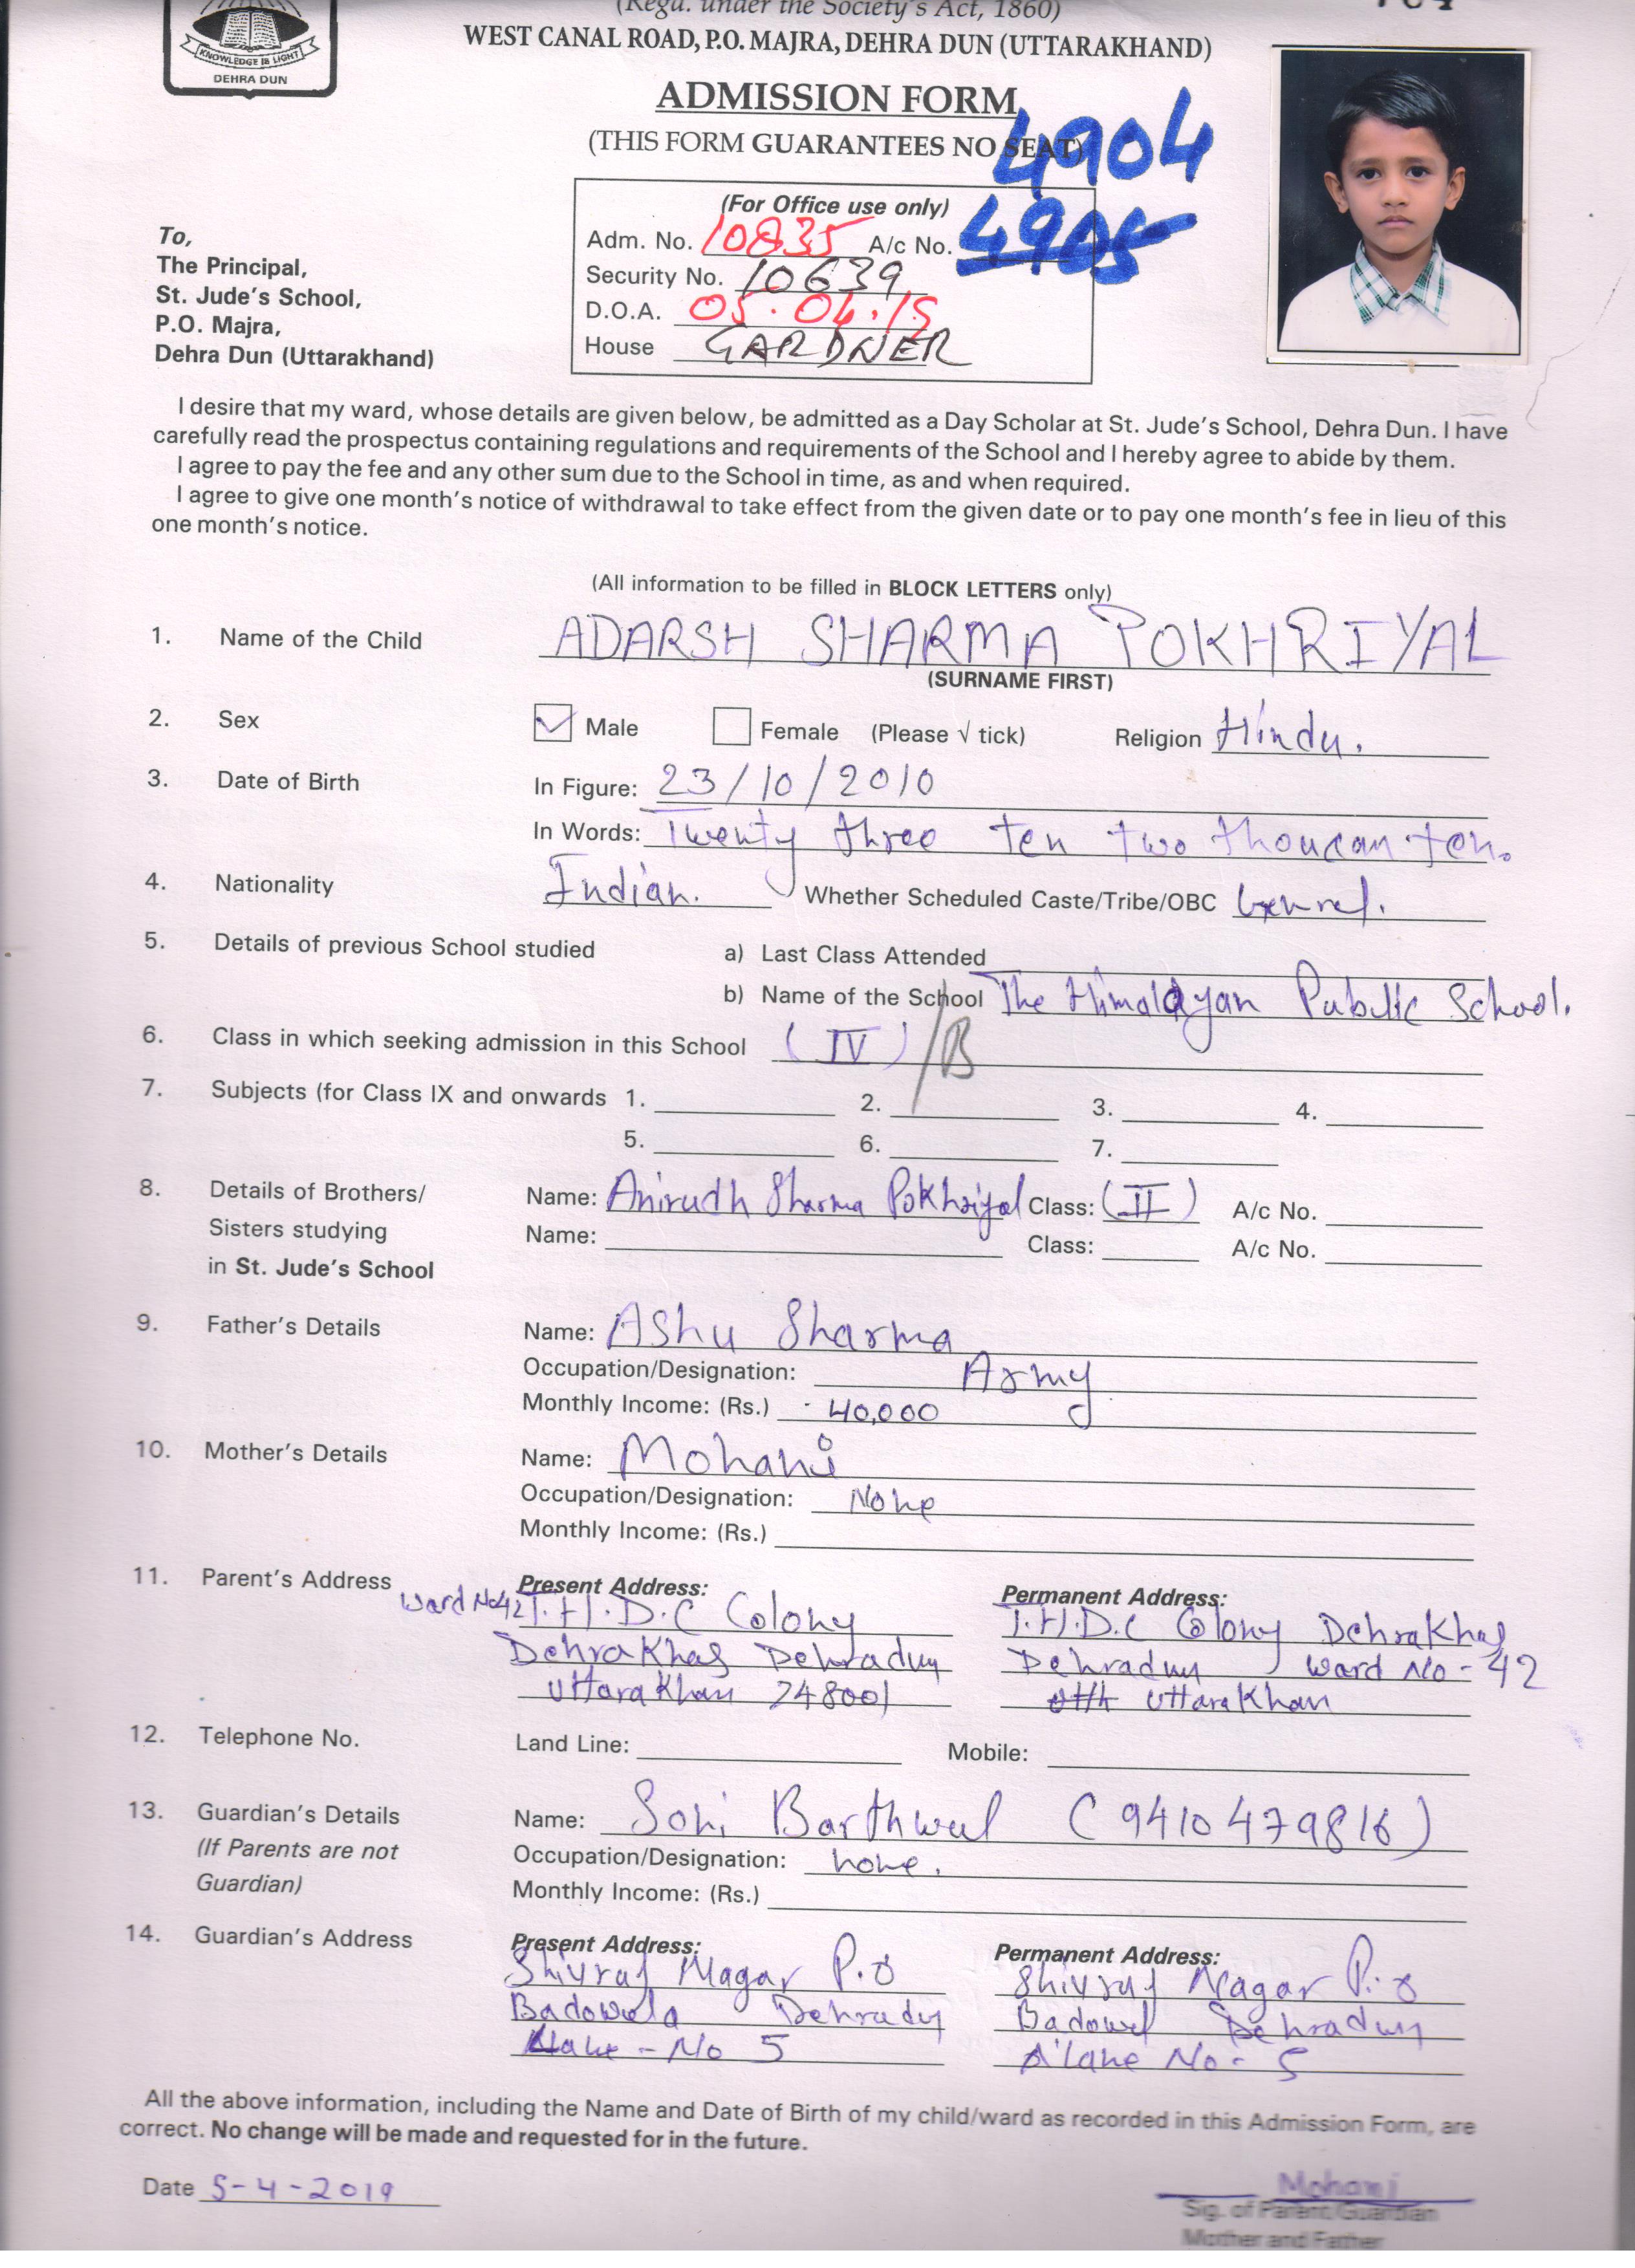 (Regd. under the Society's Act, 1860)
WEST CANAL ROAD, P.O. MAJRA, DEHRA DUN (UTTARAKHAND)
KNOWLEDGE IS LIGHT
DEHRA DUN
ADMISSION FORM
(THIS FORM GUARANTEES NO SEAT)
4904
(For Office use only)
Adm. No. 10835 A/c No. 4905
Security No. 10639
D.O.A. 05.04.19
House GARDNER
To,
The Principal,
St. Jude's School,
P.O. Majra,
Dehra Dun (Uttarakhand)
I desire that my ward, whose details are given below, be admitted as a Day Scholar at St. Jude's School, Dehra Dun. I have
carefully read the prospectus containing regulations and requirements of the School and I hereby agree to abide by them.
I agree to pay the fee and any other sum due to the School in time, as and when required.
I agree to give one month's notice of withdrawal to take effect from the given date or to pay one month's fee in lieu of this
one month's notice.
(All information to be filled in BLOCK LETTERS only)
1. Name of the Child ADARSH SHARMA POKHRIYAL
(SURNAME FIRST)
2. Sex Male Female (Please √ tick) Religion Hindu.
3. Date of Birth In Figure: 23/10/2010
In Words: Twenty three ten two thoucan ten.
4. Nationality Indian. Whether Scheduled Caste/Tribe/OBC
5. Details of previous School studied a) Last Class Attended
b) Name of the School The Himalayan Public School.
6. Class in which seeking admission in this School (IV) /B
7. Subjects (for Class IX and onwards 1. 2. 3. 4.
5. 6. 7.
8. Details of Brothers/ Name: Anirudh Sharma Pokhriyal Class: (II) A/c No.
Sisters studying Name: Class: A/c No.
in St. Jude's School
9. Father's Details Name: Ashu Sharma
Occupation/Designation: Army
Monthly Income: (Rs.) 40,000
10. Mother's Details Name: Mohani
Occupation/Designation: None
Monthly Income: (Rs.)
11. Parent's Address Present Address: Permanent Address:
Ward No 42 T.H.D.C Colony T.H.D.C Colony DehraKhas
DehraKhas Dehradun Dehradun Ward No - 42
UttaraKhan 248001 UttaraKhan
12. Telephone No. Land Line: Mobile:
13. Guardian's Details Name: Soni Barthwal (9410479816)
(If Parents are not Occupation/Designation: none.
Guardian) Monthly Income: (Rs.)
14. Guardian's Address Present Address: Permanent Address:
Shivraj Nagar P.o Shivraj Nagar P.o
Badowala Dehradun Badowel Dehradun
No 5 lane No - 5
All the above information, including the Name and Date of Birth of my child/ward as recorded in this Admission Form, are
correct. No change will be made and requested for in the future.
Date 5-4-2019 Mohani
Sig. of Parent/Guardian
Mother and Father